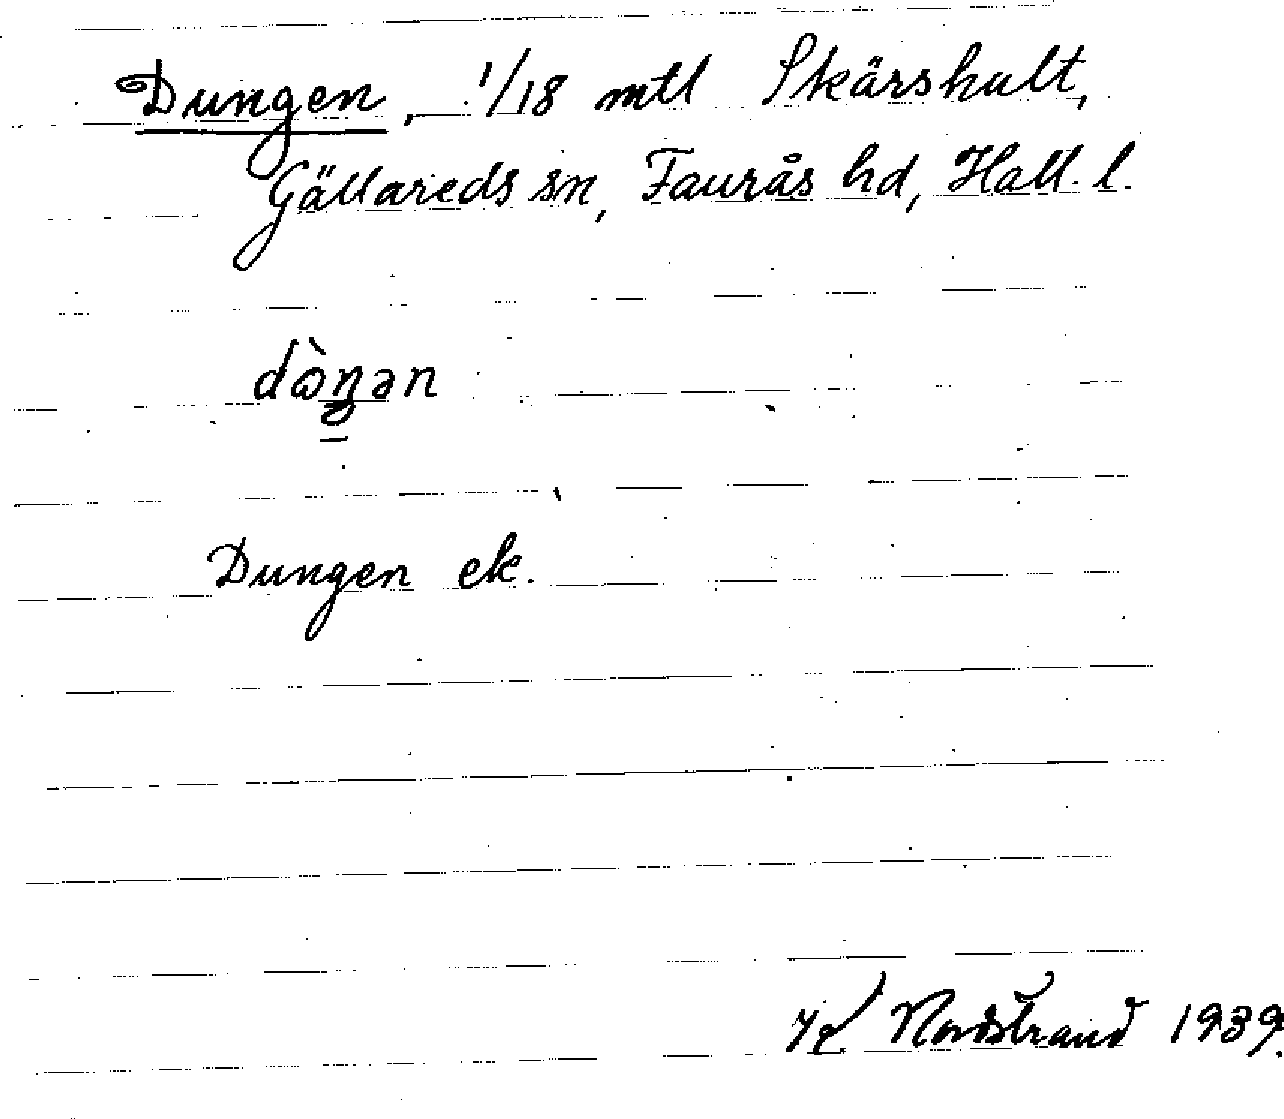 Dungen, 1/18 mtl Skärshult,
Gällareds sn, Faurås hd, Hall. l.
dò̱ŋən
Dungen ek.
Nordstrand 1939.